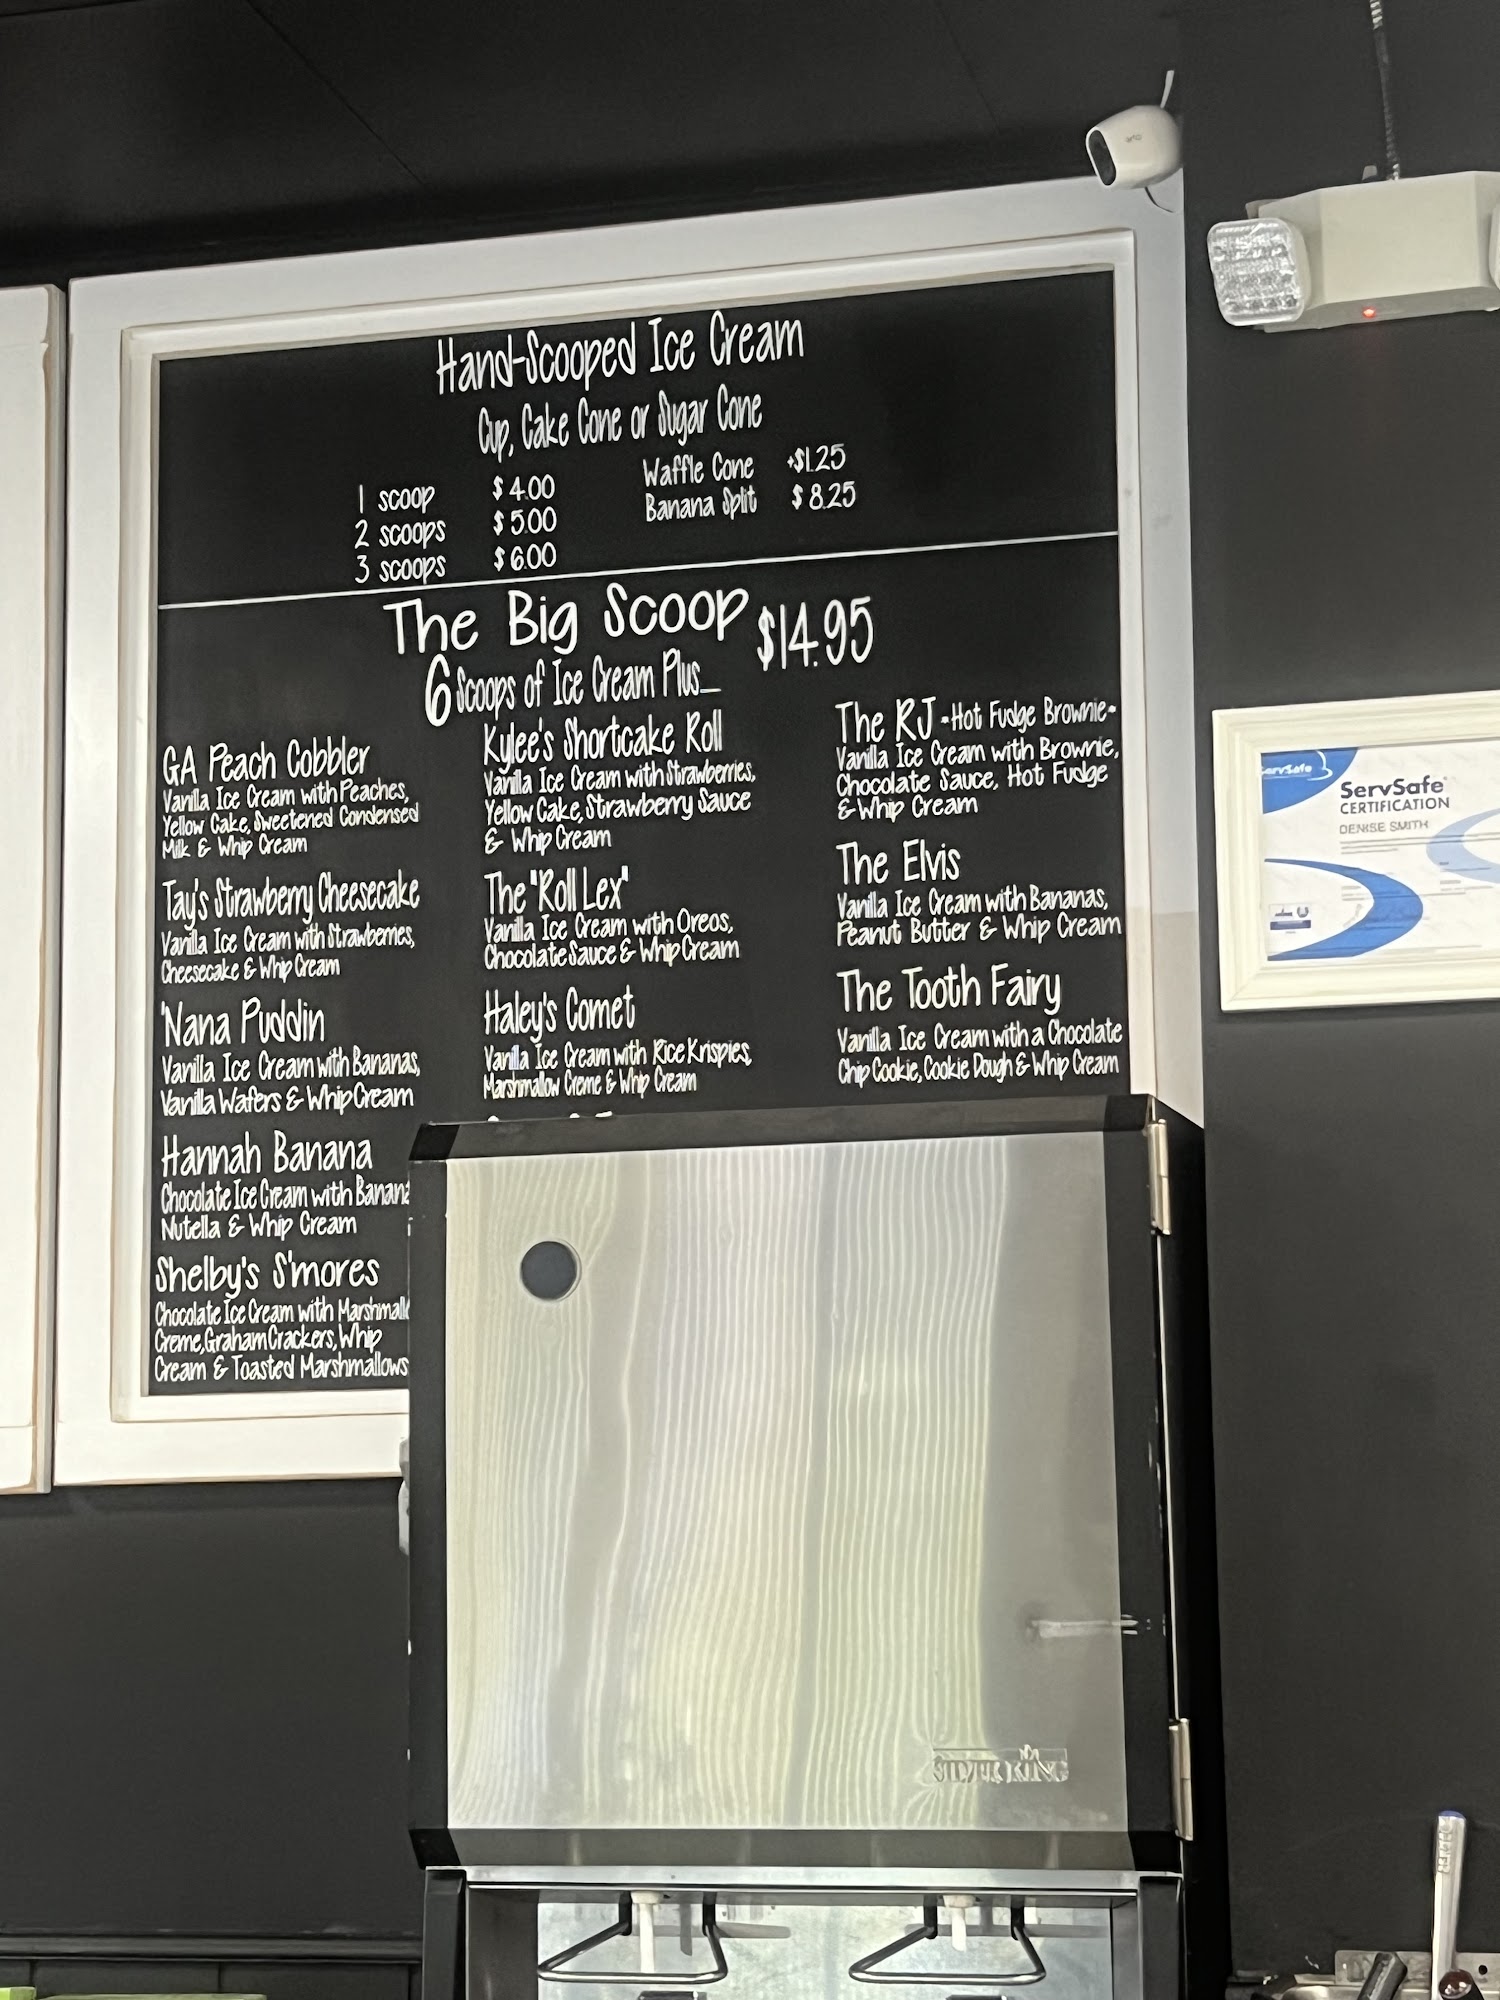 Hand-Scooped Ice Cream
Cup, Cake Cone or Sugar Cone
1 scoop $4.00
2 scoops $5.00
3 scoops $6.00
Waffle Cone +$1.25
Banana Split $8.25
The Big Scoop $14.95
6 Scoops of Ice Cream Plus...
GA Peach Cobbler
Vanilla Ice Cream with Peaches,
Yellow Cake, Sweetened Condensed
Milk & Whip Cream
Tay's Strawberry Cheesecake
Vanilla Ice Cream with Strawberries,
Cheesecake & Whip Cream
'Nana Puddin
Vanilla Ice Cream with Bananas,
Vanilla Wafers & Whip Cream
Hannah Banana
Chocolate Ice Cream with Banana
Nutella & Whip Cream
Shelby's S'mores
Chocolate Ice Cream with Marshmall
Creme, Graham Crackers, Whip
Cream & Toasted Marshmallows
Kylee's Shortcake Roll
Vanilla Ice Cream with Strawberries,
Yellow Cake, Strawberry Sauce
& Whip Cream
The "Roll Lex"
Vanilla Ice Cream with Oreos,
Chocolate Sauce & Whip Cream
Haley's Comet
Vanilla Ice Cream with Rice Krispies,
Marshmallow Creme & Whip Cream
The RJ -Hot Fudge Brownie-
Vanilla Ice Cream with Brownie,
Chocolate Sauce, Hot Fudge
& Whip Cream
The Elvis
Vanilla Ice Cream with Bananas,
Peanut Butter & Whip Cream
The Tooth Fairy
Vanilla Ice Cream with a Chocolate
Chip Cookie, Cookie Dough & Whip Cream
arlo
ServSafe
ServSafe
CERTIFICATION
DENISE SMITH
SILVER KING